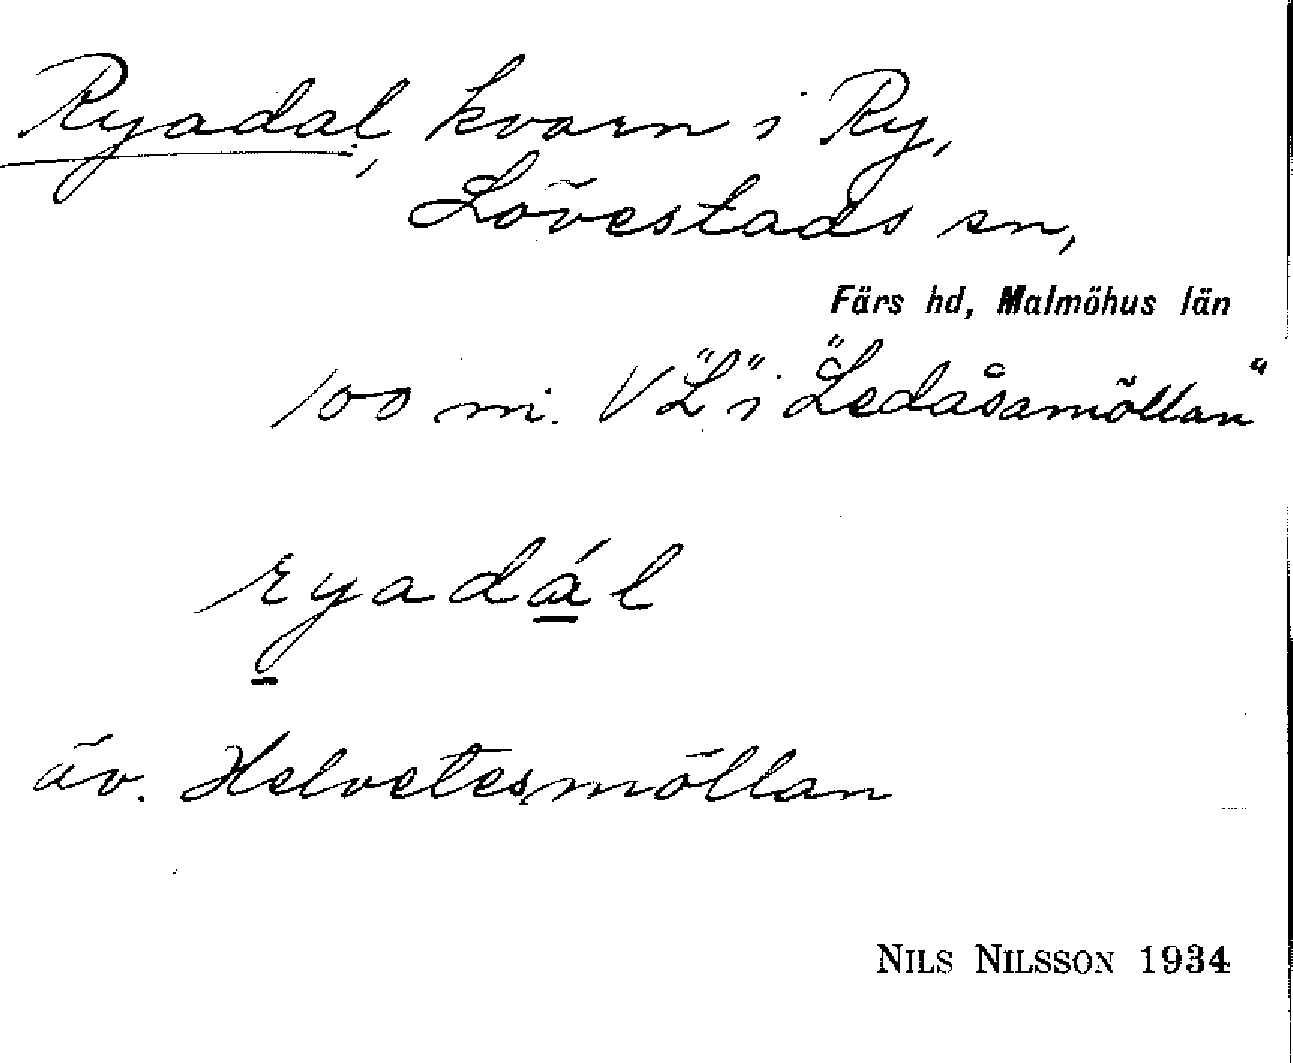 Ryadal, kvarn i Ry,
Lövestads sn,
Färs hd, Malmöhus län
100 m. V "L" i "Ledåsamöllan"
ryadál
äv. Helvetesmöllan
NILS NILSSON 1934